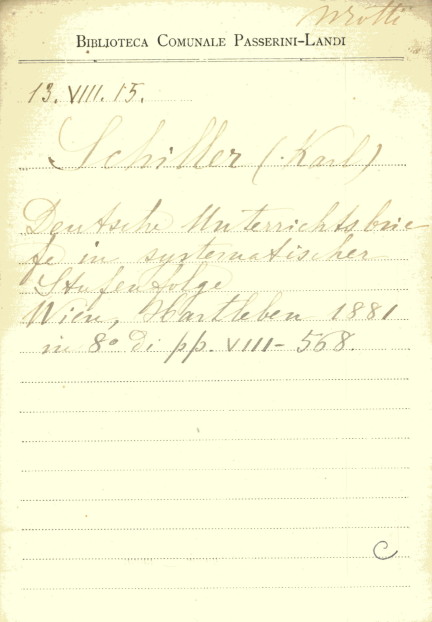 BIBLIOTECA COMUNALE PASSERINI-LANDI
13. VIII. 15.
Schiller (Karl)
Deutsche Unterrichtsbrie
fe in systematischer
Stufenfolge
Wien, Hartleben 1881
in 8° di pp. VIII - 568.
C